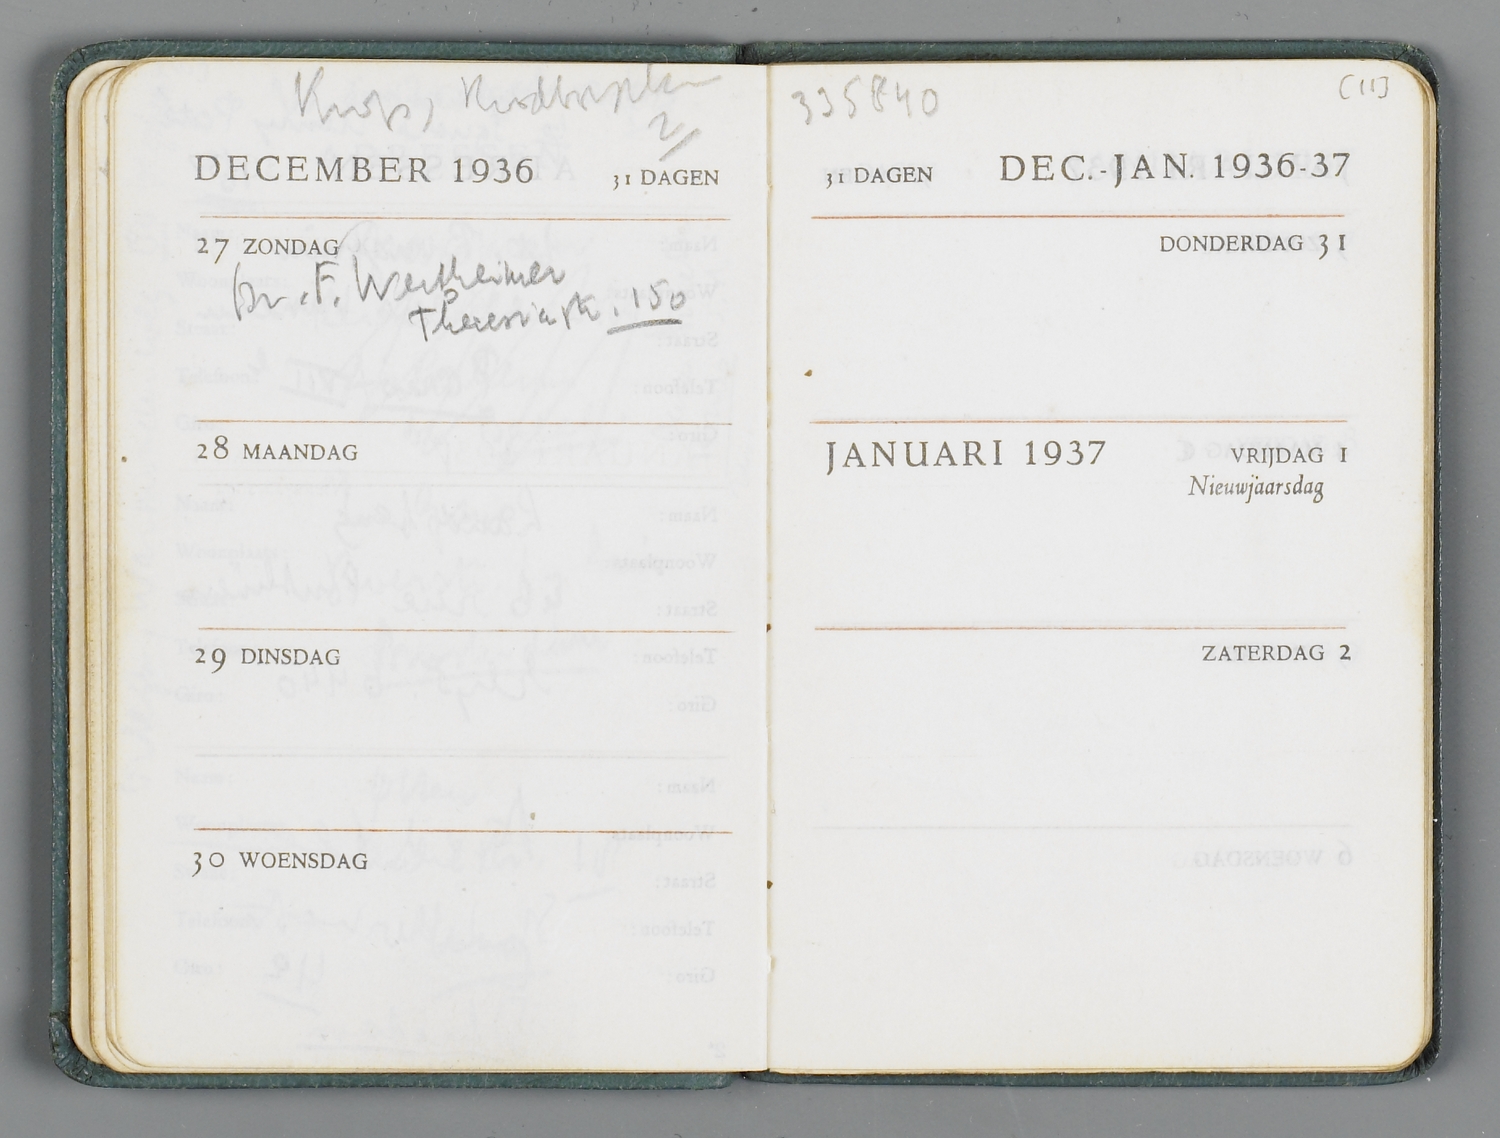 2
DECEMBER 1936
31 DAGEN
27 ZONDAG
Dr. F. Wertheimer
Theresiastr. 150
28 MAANDAG
29 DINSDAG
30 WOENSDAG
335840
[11]
31 DAGEN
DEC.-JAN. 1936-37
DONDERDAG 31
JANUARI 1937
VRIJDAG 1
Nieuwjaarsdag
ZATERDAG 2